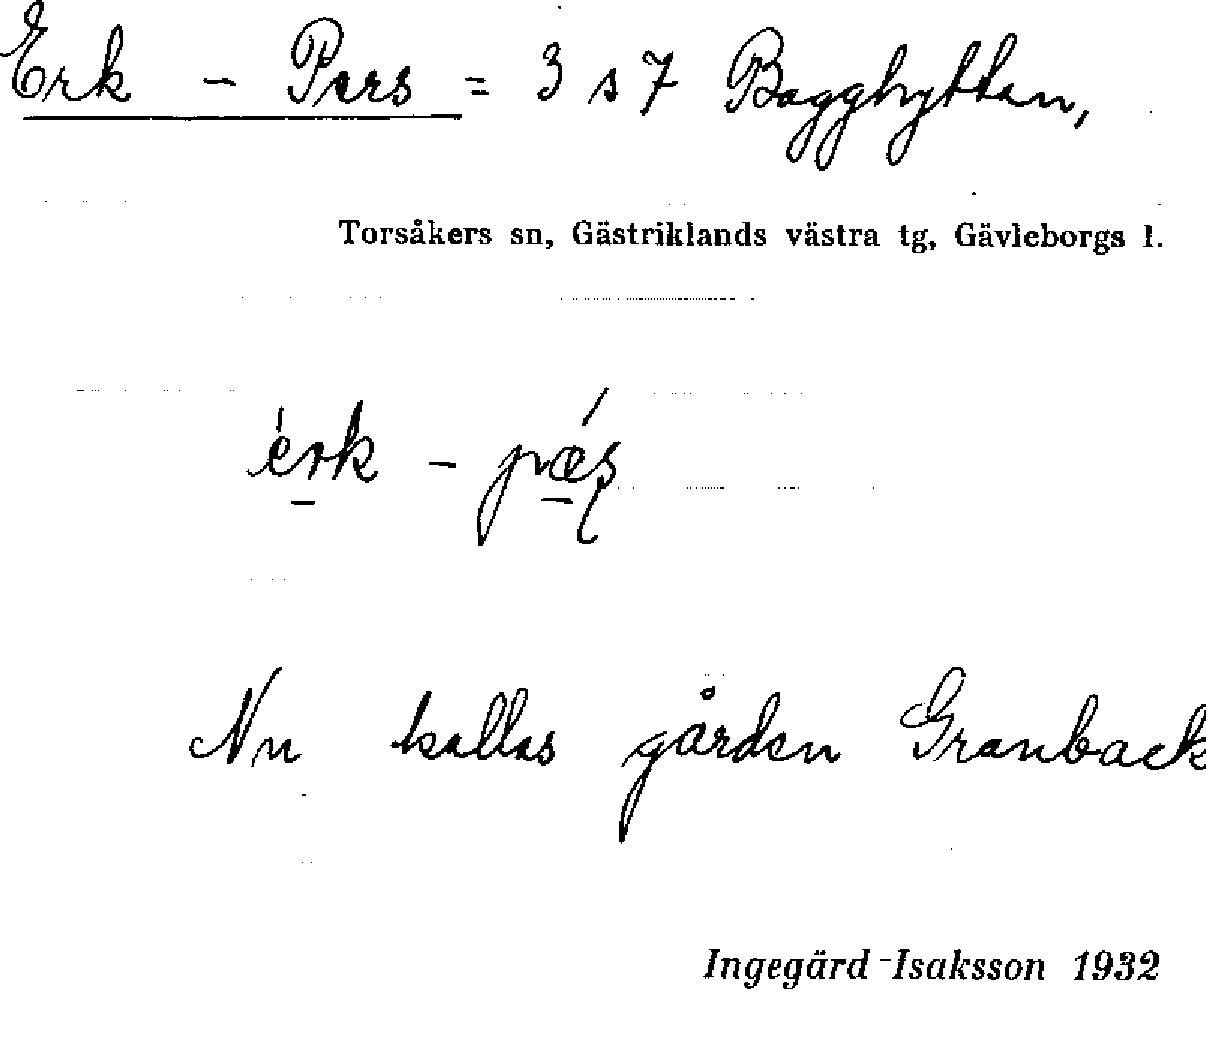 Erk - Pers = 3 s 7 Bagghyttan,
Torsåkers sn, Gästriklands västra tg, Gävleborgs l.
èrk - pǽʂ
Nu kallas gården Granback
Ingegärd Isaksson 1932